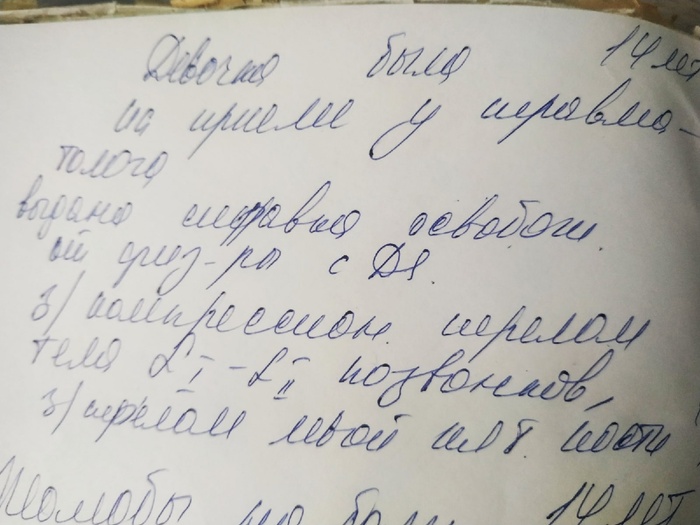 Девочка была 14 лет
на приеме у травма-
толога
выдана справка освобожд.
от физ-ры с DS.
з/компрессион. перелом
тела L I - L II позвонков,
з/перелом
Жалобы на бол 14 лет